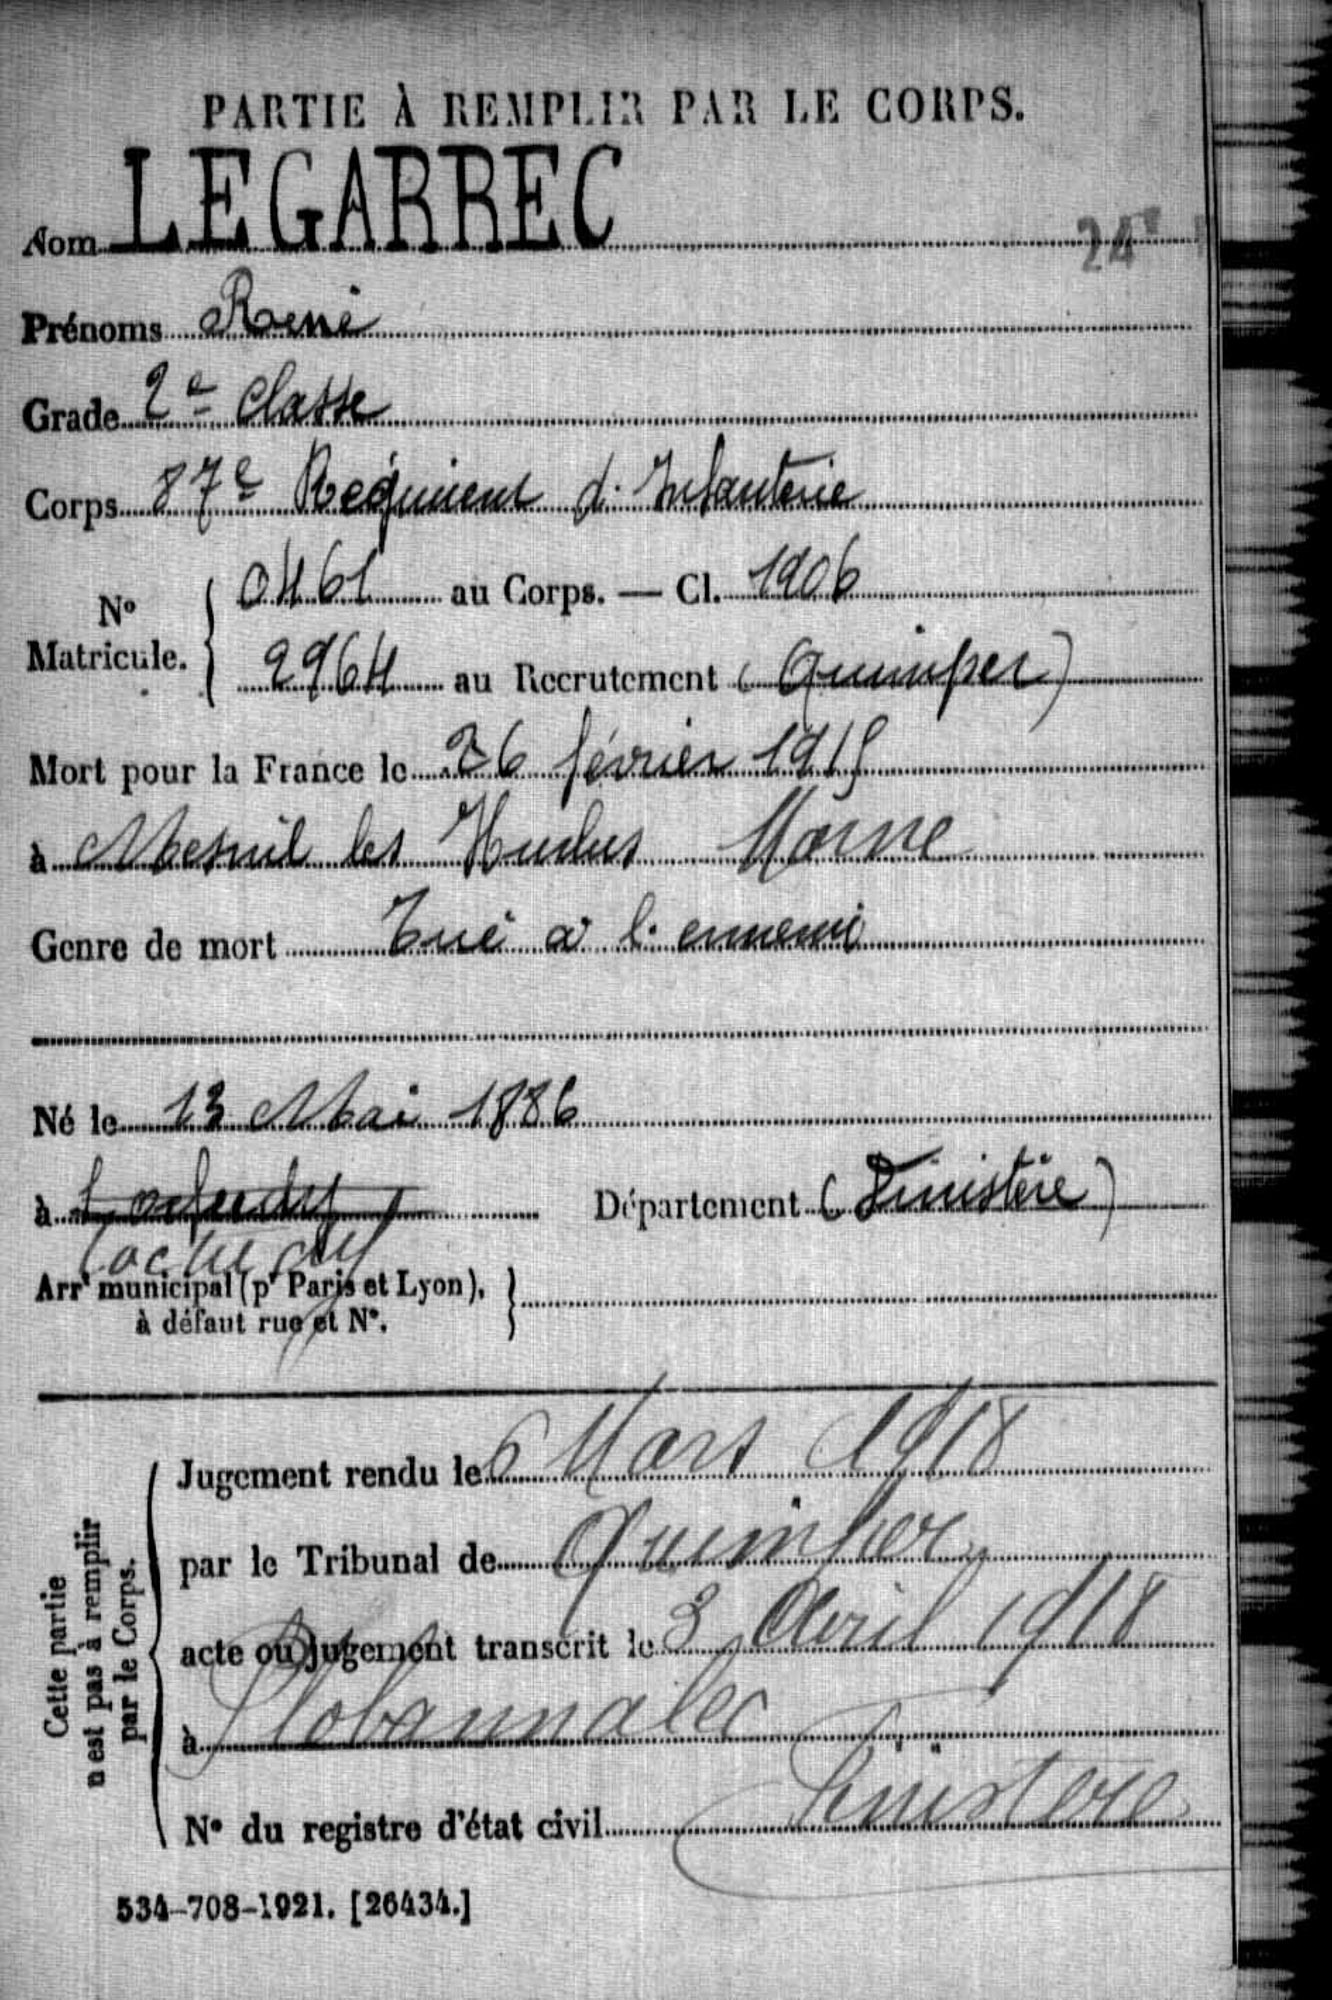 PARTIE À REMPLIR PAR LE CORPS.
Nom LE GARREC
24
Prénoms René
Grade 2e Classe
Corps 87e Régiment d'Infanterie
N° Matricule. 0461 au Corps. — Cl. 1906
2964 au Recrutement (Quimper)
Mort pour la France le 26 février 1915
à Mesnil les Hurlus Marne
Genre de mort Tué à l'ennemi
Né le 13 Mai 1886
à Département (Finistère)
Loctudy
Arrt municipal (pr Paris et Lyon),
à défaut rue et N°.
Cette partie n'est pas à remplir par le Corps.
Jugement rendu le 6 Mars 1918
par le Tribunal de Quimper
acte ou jugement transcrit le 3 Avril 1918
à Plobannalec
Finistère
N° du registre d'état civil
534-708-1921. [26434.]